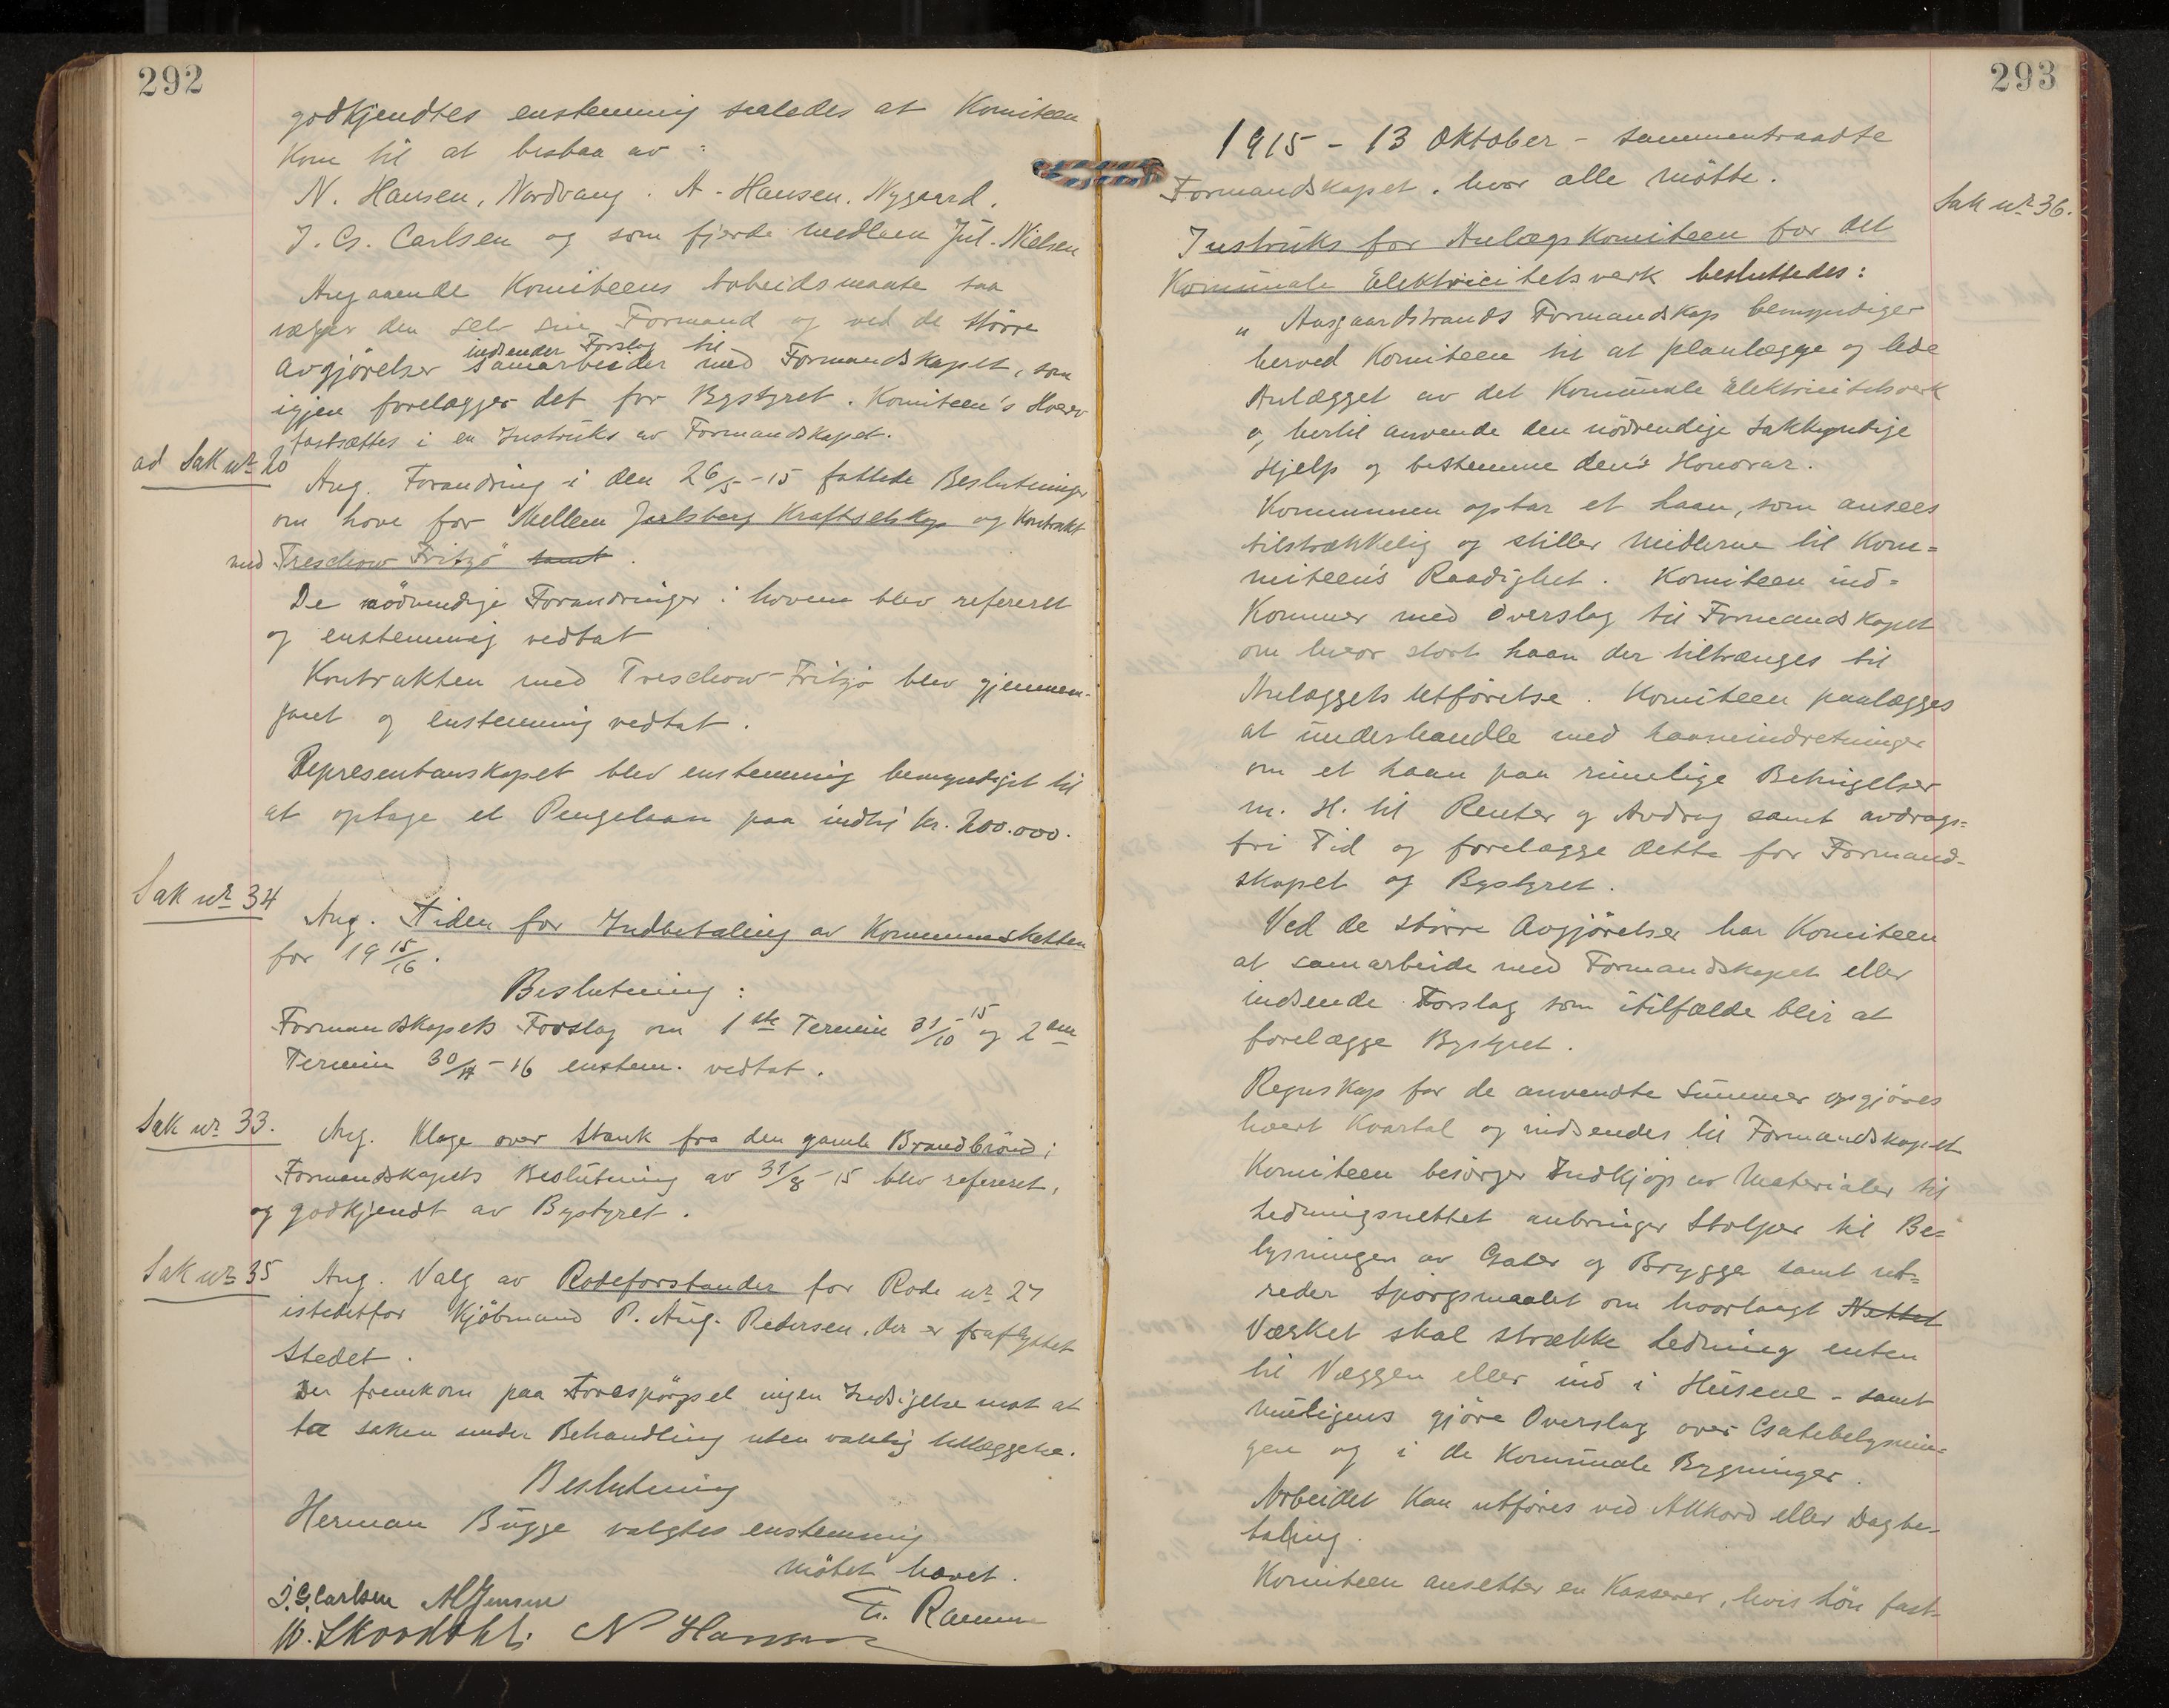 292
godkjendtes enstemmig saaledes at Komiteen
kom til at bestaa av :
N. Hansen, Nordvang. A. Hansen, Nygaard.
J. G. Carlsen og som fjerde medlem Jul. Nielsen
Angaaende Komiteens Arbeidsmaate saa
vælger den selv sin Formand og ved de større
indsender Forslag til
Avgjörelser samarbeider med Formandskapet, som
igjen forelægger det for Bystyret. Komiteen's Hverv
fastsættes i en Instruks av Formandskapet.
ad Sak nr 20
Ang. Forandring i den 26/5-15 fattede Beslutninger
om love for Mellem Jarlsberg Kraftselskap og Kontrakt
med Treschow Fritzö" samt.
De nödvendige Forandringer i lovene blev refereret
og enstemmig vedtat
Kontrakten med Treschow-Fritzö blev gjennem-
gaaet og enstemmig vedtat.
Representanskapet blev enstemmig bemyndiget til
at optage et Pengelaan paa indtil kr. 200.000.
Sak nr 34
Ang. Tiden for Indbetaling av Kommuneskatten
for 1915/16.
Beslutning :
Formandskapets Forslag om 1ste Termin 31/10-15 og 2den
Termin 30/4-16 enstem. vedtat.
Sak nr 33.
Ang. Klage over Stank fra den gamle Brandbrönd;
Formandskapets Beslutning av 31/8-15 blev refereret,
og godkjendt av Bystyret.
Sak nr 35
Ang. Valg av Rodeforstander for Rode nr 27
istedetfor Kjöbmand P. Aug. Pedersen, der er fraflyttet
Stedet.
Der fremkom paa Forespörgsel ingen Indsigelse mot at
ta saken under Behandling uten vanlig utlæggelse.
Beslutning
Herman Bugge valgtes enstemmig
mötet hævet.
J. G. Carlsen
N Hansen
293
1915 - 13 Oktober - sammentraadte
Formandskapet. hvor alle mötte.
Sak nr 36.
Instruks for Anlægskomiteen for det
Kommunale Elektricitetsverk besluttedes:
„ Aasgaardstrands Formandskap bemyndiger
herved Komiteen til at planlægge og lede
Anlægget av det Kommunale Elektricitetsverk
og hertil anvende den nödvendige sakkyndige
Hjelp og bestemme den's Honorar.
Kommunen optar et laan, som ansees
tilstrækkelig og stiller midlerne til Kom=
miteen's Raadighet. Komiteen ind=
kommer med Overslag til Formandskapet
om hvor stort laan der tiltrænges til
Anlæggets Utförelse. Komiteen paalægges
at underhandle med laaneindretninger
om et laan paa rimelige Betingelser
m. H. til Renter og Avdrag samt avdrags=
fri Tid og forelægge dette for Formand-
skapet og Bystyret.
Ved de större Avgjörelser har Komiteen
at samarbeide med Formandskapet eller
indsende Forslag som itilfælde blir at
forelægge Bystyret.
Regnskap for de anvendte Summer opgjöres
hvert Kvartal og indsendes til Formandskapet
Komiteen besörger Indkjöp av Materialer til
Ledningsnettet anbringer Stolper til Be=
lysningen av Gater og Brygge samt ut=
reder Spörgsmaalet om hvorlangt Nettet
Værket skal strække Ledning enten
til Væggen eller ind i Husene - samt
muligens gjöre Overslag over Gatebelysnin=
gen og i de Kommunale Bygninger.
Arbeidet kan utföres ved Akkord eller Dagbe-
taling.
Komiteen ansetter en Kasserer, hvis lön fast-